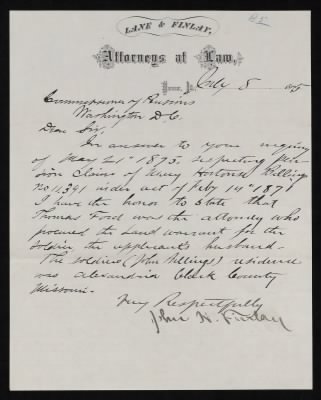 LANE & FINLAY,
Attorneys at Law,
July 8
Commissioner of Pensions
Washington D.C.
Dear Sir,
In answer to your inquiry
of May 21st 1875, respecting Pen-
sion Claim of Mary Hortense Billings
No 11,391 under act of Feby 14th 1871
I have the honor to State that
Thomas Ford was the attorney who
procured the Land warrant for the
soldier the applicant's husband-
The soldiers (John Billings) residence
was Alexandria Clark County
Missouri.
Very Respectfully
John N. Finlay